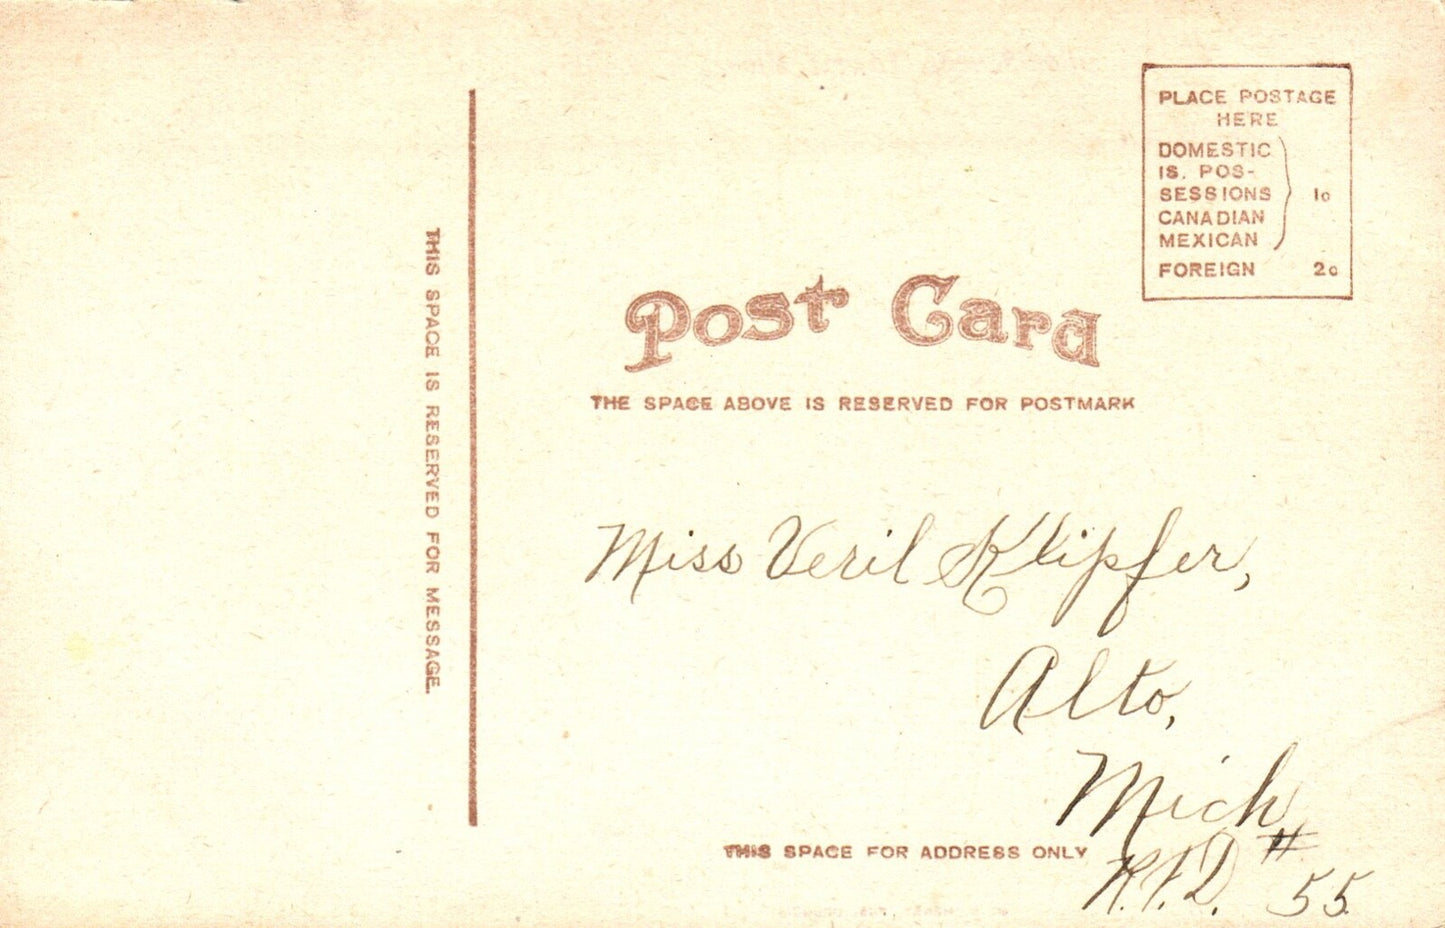 PLACE POSTAGE
HERE
DOMESTIC
IS. POS-
SESSIONS 1c
CANADIAN
MEXICAN
FOREIGN 2c
THIS SPACE IS RESERVED FOR MESSAGE.
Post Card
THE SPACE ABOVE IS RESERVED FOR POSTMARK
Miss Veril Klipfer,
Alto,
Mich
THIS SPACE FOR ADDRESS ONLY
R.F.D. # 55